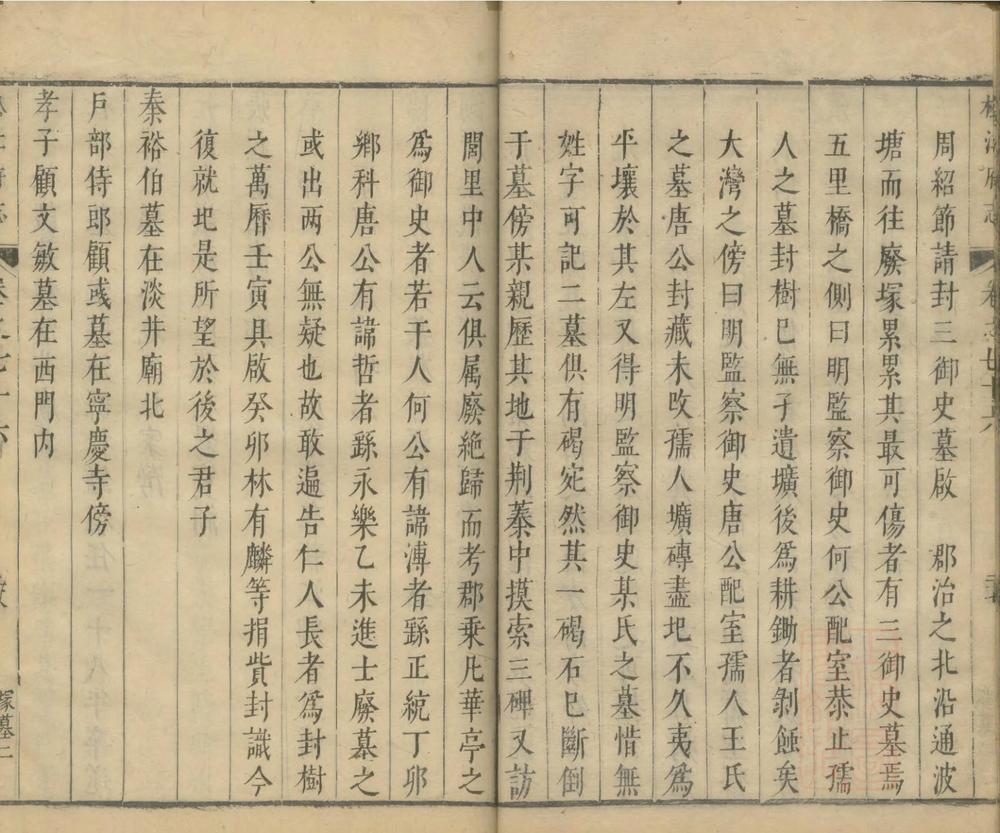 周紹節請封三御史墓啟　郡治之北沿通波
塘而往廢塚累累其最可傷者有三御史墓焉
五里橋之側曰明監察御史何公配室恭止孺
人之墓封樹已無孑遺壙後為耕鋤者剝蝕矣
大灣之傍曰明監察御史唐公配室孺人王氏
之墓唐公封藏未攺孺人壙磚盡圯不久夷為
平壤於其左又得明監察御史某氏之墓惜無
姓字可記二墓俱有碣宛然其一碣石已斷倒
于墓傍某親歷其地于荆蓁中摸索三碑又訪
閭里中人云俱属廢絶歸而考郡乗凢華亭之
為御史者若干人何公有諱溥者繇正統丁夘
鄉科唐公有諱哲者繇永樂乙未進士廢墓之
或出两公無疑也故敢遍告仁人長者為封樹
之萬曆壬寅具啟癸夘林有麟等捐貲封識今
復就圯是所望於後之君子
秦裕伯墓在淡井廟北
戶部侍郎顧彧墓在寧慶寺傍
孝子顧文敏墓在西門内
塚墓二